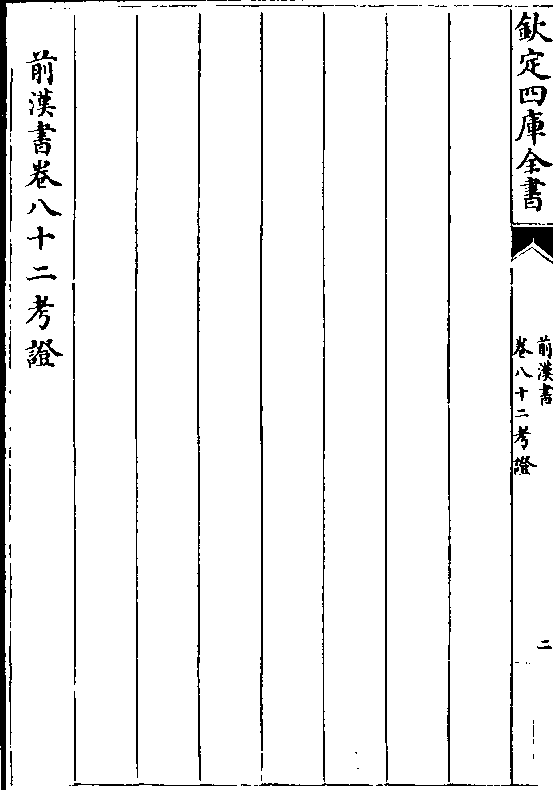 欽定四庫全書
前漢書
卷八十二考證
二
前漢書卷八十二考證